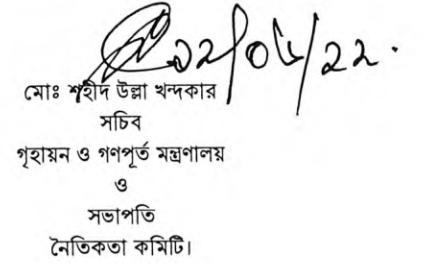 ২২/০৬/২২.
মোঃ শহীদ উল্লা খন্দকার
সচিব
গৃহায়ন ও গণপূর্ত মন্ত্রণালয়
ও
সভাপতি
নৈতিকতা কমিটি।